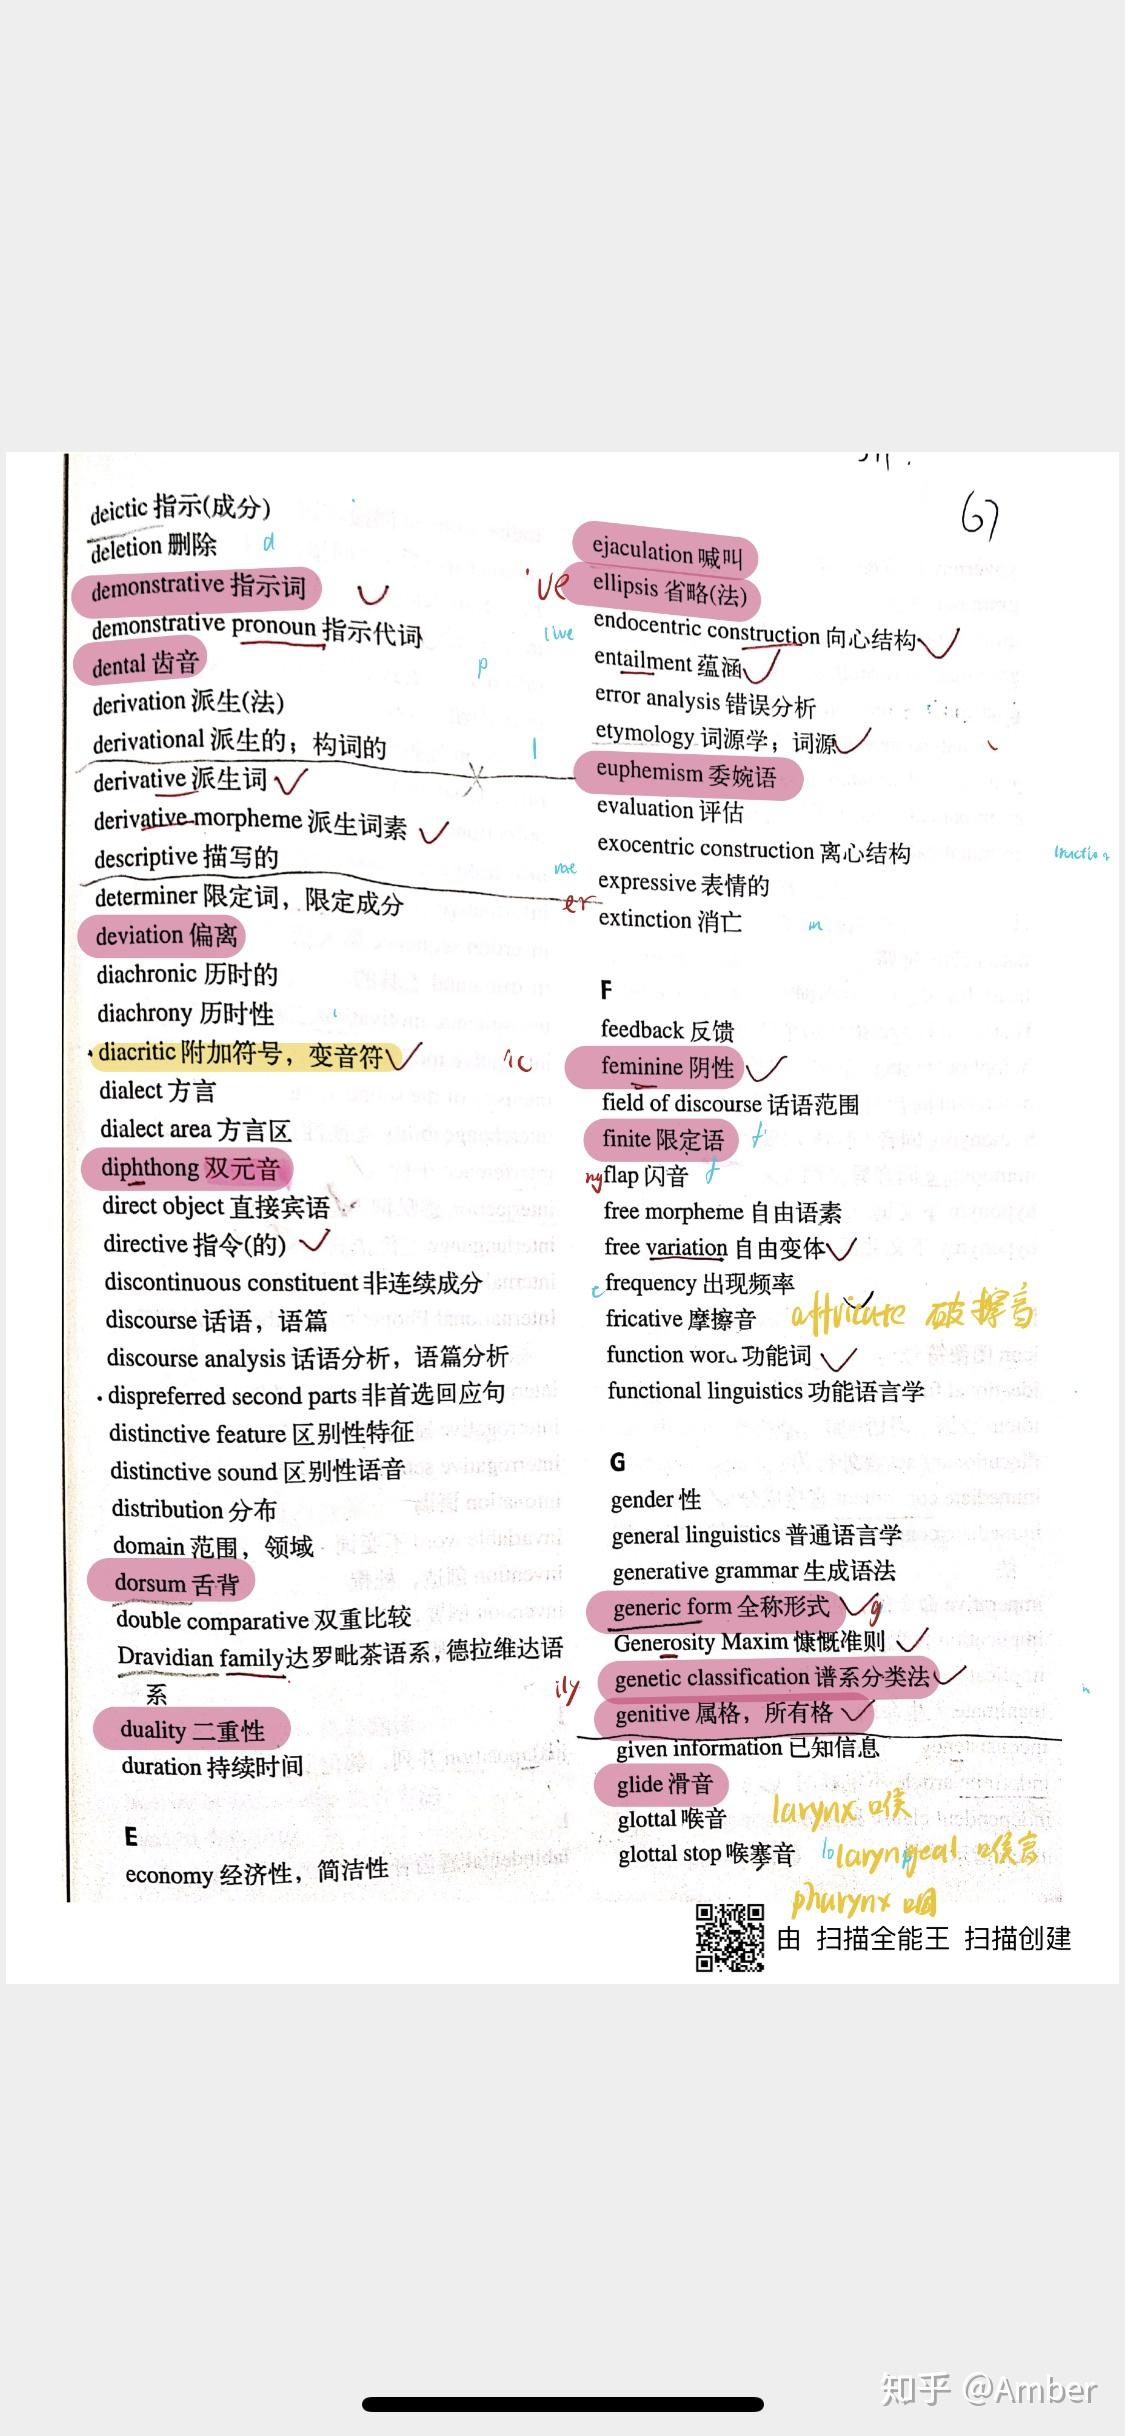 67
deictic 指示(成分)
deletion 删除
d
demonstrative 指示词
demonstrative pronoun 指示代词
dental 齿音
p
derivation 派生(法)
derivational 派生的；构词的
l
derivative 派生词
derivative morpheme 派生词素
descriptive 描写的
determiner 限定词，限定成分
er
deviation 偏离
diachronic 历时的
diachrony 历时性
diacritic 附加符号，变音符
ic
dialect 方言
dialect area 方言区
diphthong 双元音
direct object 直接宾语
directive 指令(的)
discontinuous constituent 非连续成分
discourse 话语，语篇
discourse analysis 话语分析，语篇分析
dispreferred second parts 非首选回应句
distinctive feature 区别性特征
distinctive sound 区别性语音
distribution 分布
domain 范围，领域
dorsum 舌背
double comparative 双重比较
Dravidian family 达罗毗荼语系，德拉维达语
系
ily
duality 二重性
duration 持续时间
E
economy 经济性，简洁性
ejaculation 喊叫
've
ellipsis 省略(法)
endocentric construction 向心结构
entailment 蕴涵
error analysis 错误分析
etymology 词源学；词源
euphemism 委婉语
evaluation 评估
exocentric construction 离心结构
expressive 表情的
extinction 消亡
F
feedback 反馈
feminine 阴性
field of discourse 话语范围
finite 限定语
ng
flap 闪音
free morpheme 自由语素
free variation 自由变体
frequency 出现频率
fricative 摩擦音
affricate 破擦音
function wor 功能词
functional linguistics 功能语言学
G
gender 性
general linguistics 普通语言学
generative grammar 生成语法
generic form 全称形式
g
Generosity Maxim 慷慨准则
genetic classification 谱系分类法
genitive 属格，所有格
given information 已知信息
glide 滑音
glottal 喉音
larynx 喉
glottal stop 喉塞音
laryngeal 喉音
pharynx 咽
由 扫描全能王 扫描创建
知乎 @Amber